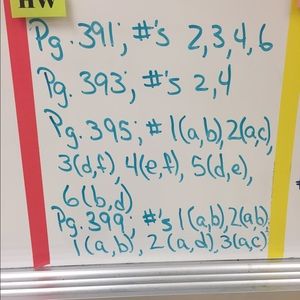 HW
Pg. 391; #'s 2,3,4,6
Pg. 393; #'s 2,4
Pg. 395; # 1(a,b), 2(a,c),
3(d,f), 4(e,f), 5(d,e),
6(b,d)
Pg. 399; #'s 1(a,b), 2(a,b)
1(a,b), 2(a,d), 3(a,c)